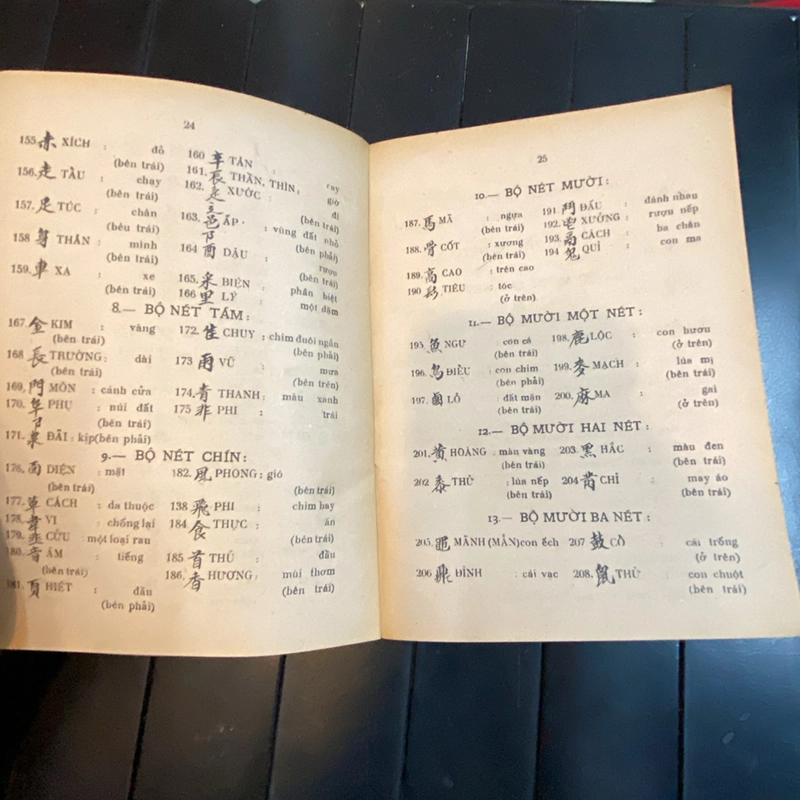 24
155. 赤 XÍCH : đỏ
(bên trái)
156. 走 TẨU : chạy
(bên trái)
157. 足 TÚC : chân
(bêu trái)
158 身 THÂN : mình
(bên trái)
159. 車 XA : xe
(bên trái)
160 辛 TÂN : cay
161. 辰 THẦN, THÌN : giờ
162. 辵 XƯỚC : đi
(bên trái)
163. 邑 ẤP : vùng đất nhỏ
阝 (bên phải)
164 酉 DẬU : rượu
(bên trái)
165. 釆 BIỆN : phân biệt
166 里 LÝ : một dặm
8.— BỘ NÉT TÁM:
167. 金 KIM : vàng
(bên trái)
168 長 TRƯỜNG : dài
(bên trái)
169. 門 MÔN : cánh cửa
170. 阜 PHỤ : núi đất
阝 (bên trái)
171. 隶 ĐÃI : kịp(bên phải)
172. 隹 CHUY : chim đuôi ngắn
(bên phải)
173 雨 VŨ : mưa
(bên trên)
174. 青 THANH : màu xanh
175 非 PHI : trái
9.— BỘ NÉT CHÍN:
176. 面 DIỆN : mặt
(bên trái)
177. 革 CÁCH : da thuộc
(bên trái)
178. 韋 VI : chống lại
179. 韭 CỬU : một loại rau
180. 音 ÂM : tiếng
(bên trái)
181. 頁 HIỆT : đầu
(bên phải)
182. 風 PHONG : gió
(bên trái)
138 飛 PHI : chim bay
184. 食 THỰC : ăn
(bên trái)
185 首 THỦ : đầu
186. 香 HƯƠNG : mùi thơm
(bên trái)
25
10.— BỘ NÉT MƯỜI:
187. 馬 MÃ : ngựa
(bêu trái)
188. 骨 CỐT : xương
(bên trái)
189 高 CAO : trên cao
190 髟 TIÊU : tóc
(ở trên)
191. 鬥 ĐẤU : đánh nhau
192. 鬯 XƯỞNG : rượu nếp
193. 鬲 CÁCH : ba chân
194 鬼 QUỈ : con ma
11.— BỘ MƯỜI MỘT NÉT:
195. 魚 NGƯ : con cá
(bên trái)
196. 鳥 ĐIỂU : con chim
(bên phải)
197 鹵 LỖ : đất mặn
(bên trái)
198. 鹿 LỘC : con hươu
(ở trên)
199. 麥 MẠCH : lúa mì
(bên trái)
200. 麻 MA : gai
(ở trên)
12.— BỘ MƯỜI HAI NÉT:
201. 黃 HOÀNG : màn vàng
(bên trái)
202 黍 THỬ : lúa nếp
(bên trái)
203. 黑 HẮC : màu đen
(bên trái)
204 黹 CHỈ : may áo
(bên trái)
13.— BỘ MƯỜI BA NÉT:
205. 黽 MÃNH (MẪN)con ếch
206 鼎 ĐỈNH : cái vạc
207 鼓 CỔ : cái trống
(ở trên)
208. 鼠 THỬ : con chuột
(bên trái)